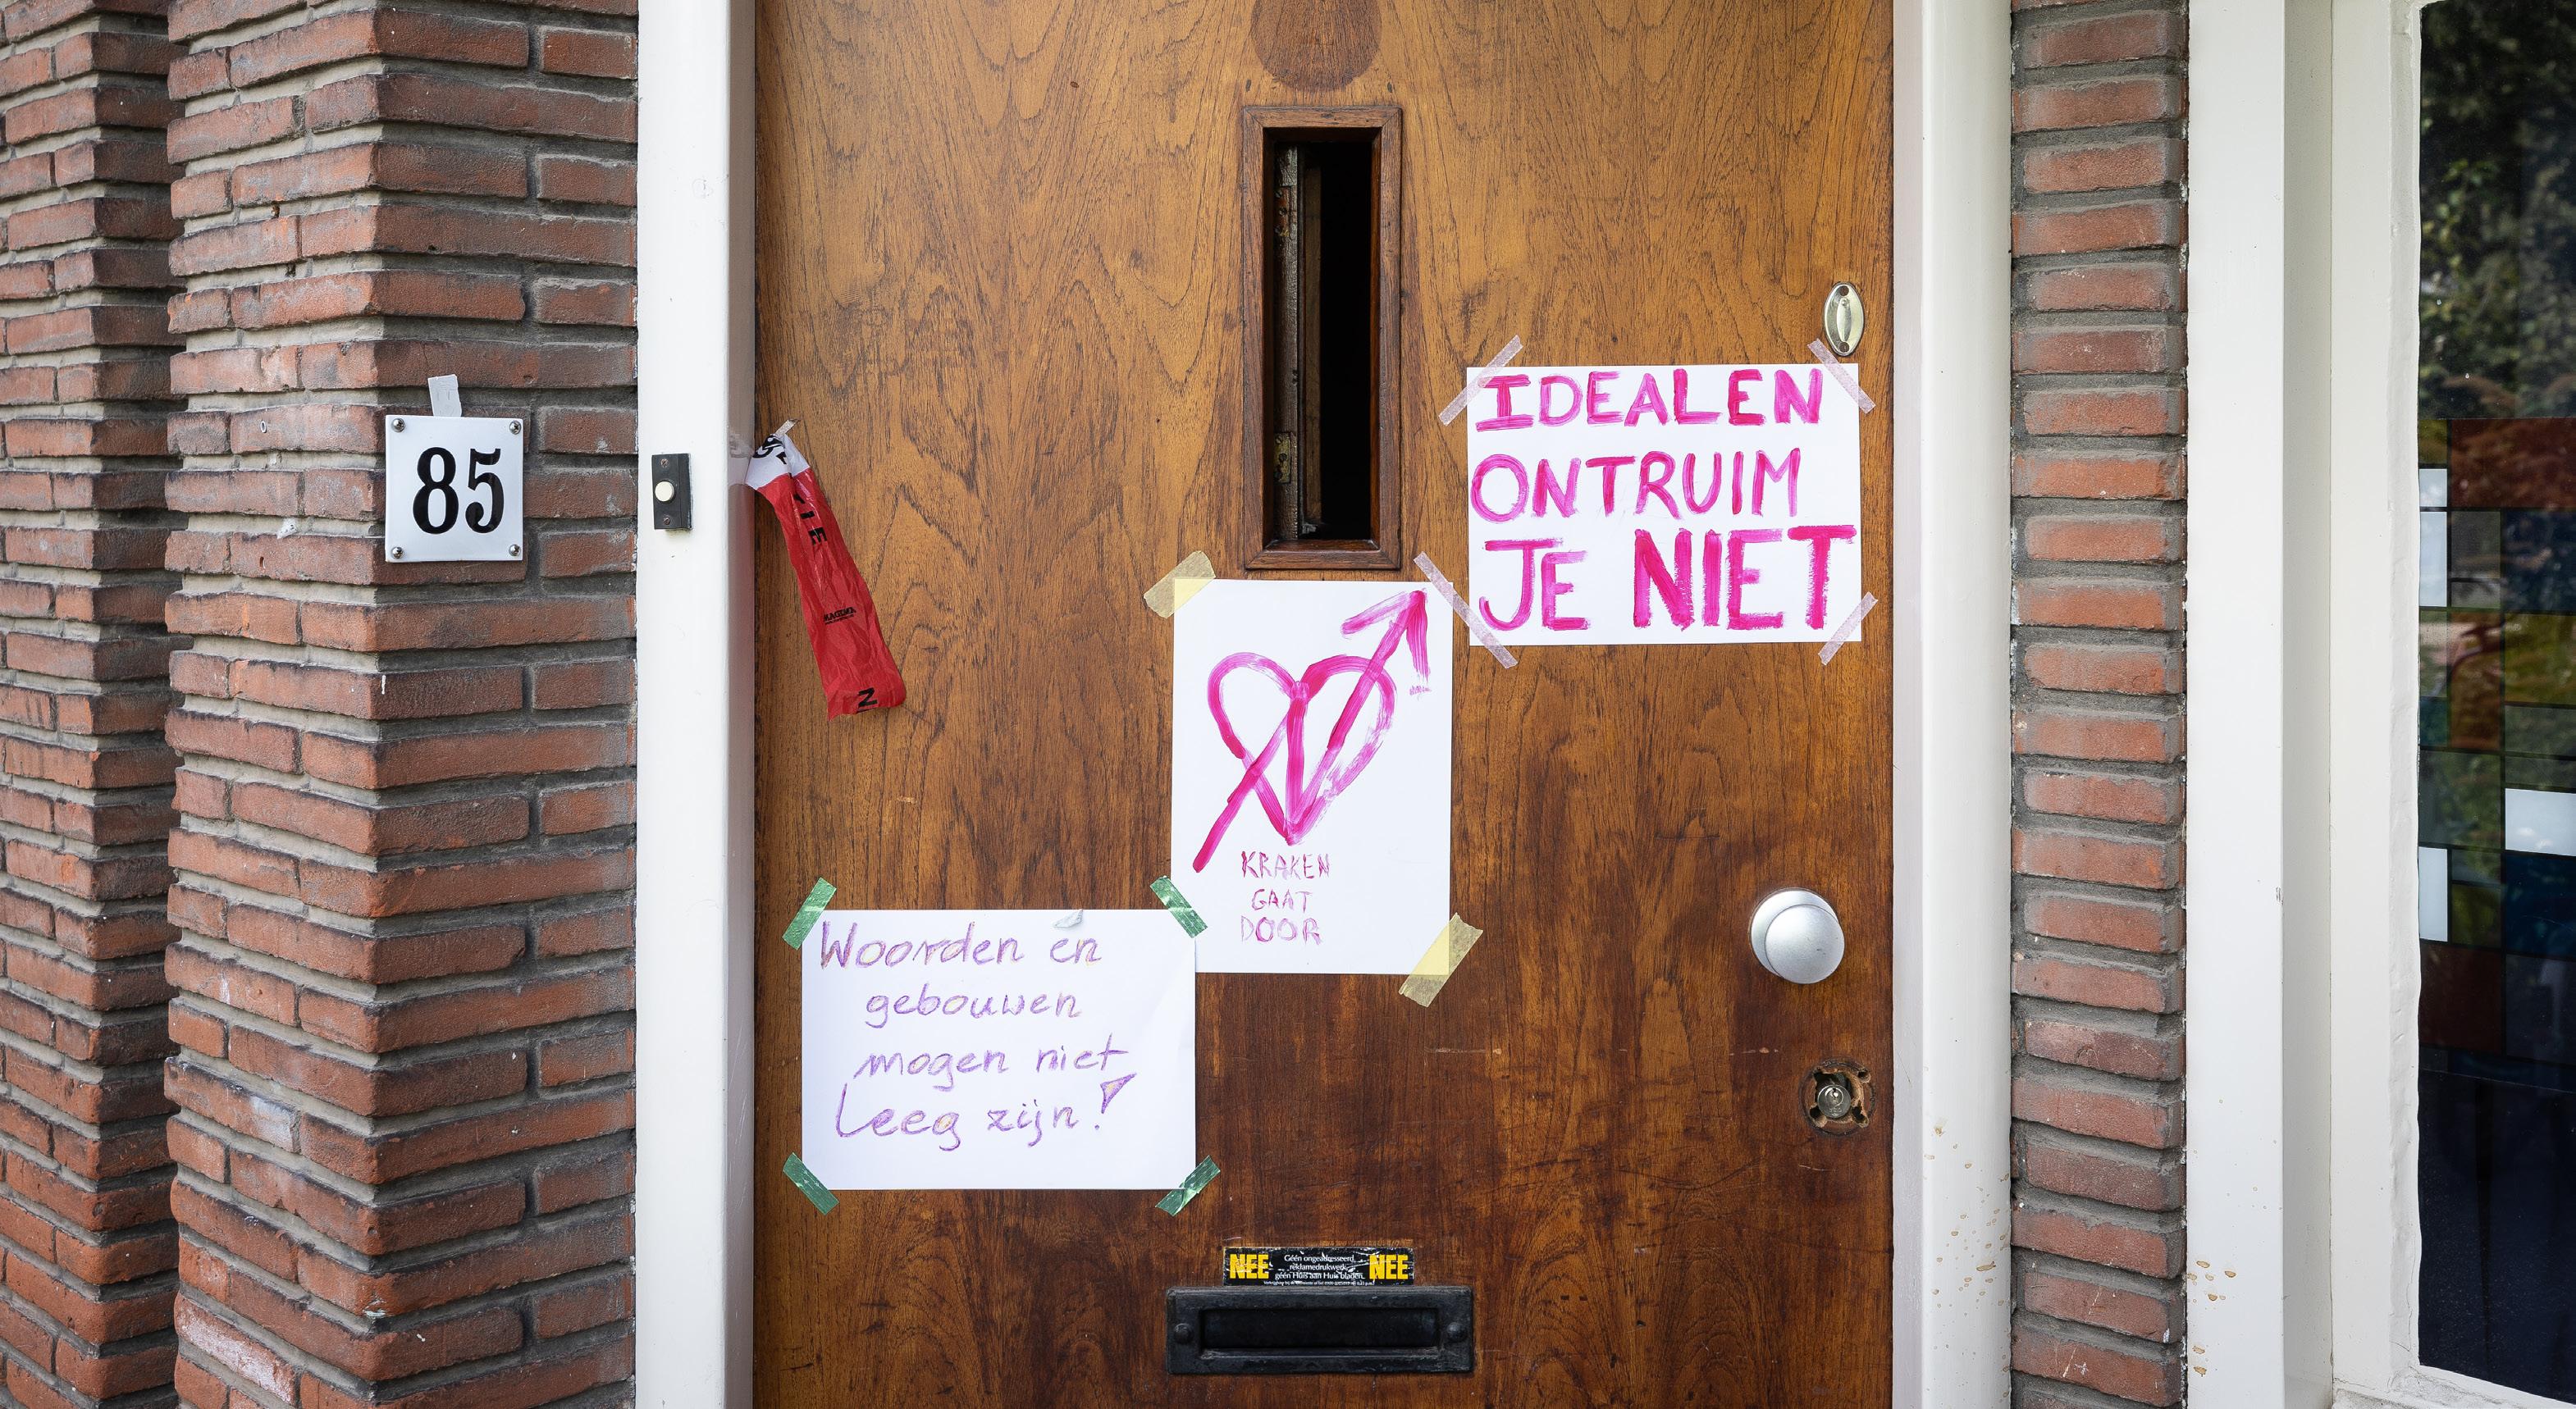 85
IDEALEN
ONTRUIM
JE NIET
KRAKEN
GAAT
DOOR
Woorden en
gebouwen
mogen niet
Leeg zijn!
NEE NEE
Géén ongeadresseerd
reklamedrukwerk,
géén Huis aan Huis bladen.
N